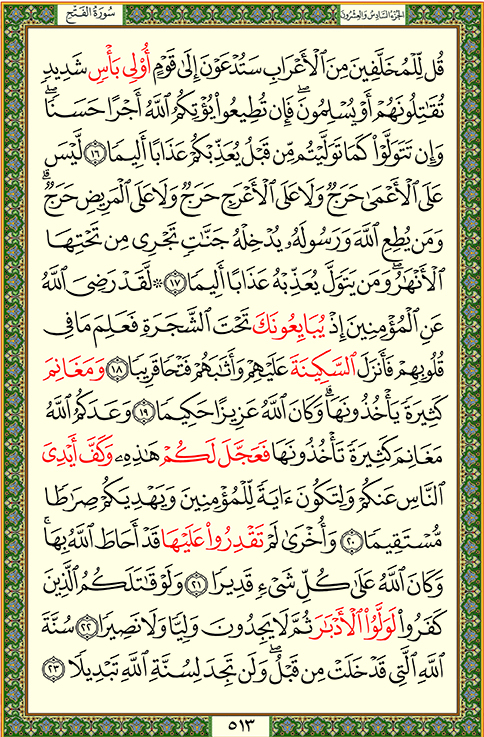 سُورَةُ الفَتْحِ الجُزْءُ السَّادِسُ وَالعِشْرُونَ
قُل لِّلْمُخَلَّفِينَ مِنَ ٱلْأَعْرَابِ سَتُدْعَوْنَ إِلَىٰ قَوْمٍ أُو۟لِى بَأْسٍ شَدِيدٍ
تُقَـٰتِلُونَهُمْ أَوْ يُسْلِمُونَ ۖ فَإِن تُطِيعُوا۟ يُؤْتِكُمُ ٱللَّهُ أَجْرًا حَسَنًا ۖ
وَإِن تَتَوَلَّوْا۟ كَمَا تَوَلَّيْتُم مِّن قَبْلُ يُعَذِّبْكُمْ عَذَابًا أَلِيمًا ١٦ لَّيْسَ
عَلَى ٱلْأَعْمَىٰ حَرَجٌ وَلَا عَلَى ٱلْأَعْرَجِ حَرَجٌ وَلَا عَلَى ٱلْمَرِيضِ حَرَجٌ ۗ
وَمَن يُطِعِ ٱللَّهَ وَرَسُولَهُۥ يُدْخِلْهُ جَنَّـٰتٍ تَجْرِى مِن تَحْتِهَا
ٱلْأَنْهَـٰرُ ۖ وَمَن يَتَوَلَّ يُعَذِّبْهُ عَذَابًا أَلِيمًا ١٧ ۞ لَّقَدْ رَضِىَ ٱللَّهُ
عَنِ ٱلْمُؤْمِنِينَ إِذْ يُبَايِعُونَكَ تَحْتَ ٱلشَّجَرَةِ فَعَلِمَ مَا فِى
قُلُوبِهِمْ فَأَنزَلَ ٱلسَّكِينَةَ عَلَيْهِمْ وَأَثَـٰبَهُمْ فَتْحًا قَرِيبًا ١٨ وَمَغَانِمَ
كَثِيرَةً يَأْخُذُونَهَا ۗ وَكَانَ ٱللَّهُ عَزِيزًا حَكِيمًا ١٩ وَعَدَكُمُ ٱللَّهُ
مَغَانِمَ كَثِيرَةً تَأْخُذُونَهَا فَعَجَّلَ لَكُمْ هَـٰذِهِۦ وَكَفَّ أَيْدِىَ
ٱلنَّاسِ عَنكُمْ وَلِتَكُونَ ءَايَةً لِّلْمُؤْمِنِينَ وَيَهْدِيَكُمْ صِرَٰطًا
مُّسْتَقِيمًا ٢٠ وَأُخْرَىٰ لَمْ تَقْدِرُوا۟ عَلَيْهَا قَدْ أَحَاطَ ٱللَّهُ بِهَا ۚ
وَكَانَ ٱللَّهُ عَلَىٰ كُلِّ شَىْءٍ قَدِيرًا ٢١ وَلَوْ قَـٰتَلَكُمُ ٱلَّذِينَ
كَفَرُوا۟ لَوَلَّوُا۟ ٱلْأَدْبَـٰرَ ثُمَّ لَا يَجِدُونَ وَلِيًّا وَلَا نَصِيرًا ٢٢ سُنَّةَ
ٱللَّهِ ٱلَّتِى قَدْ خَلَتْ مِن قَبْلُ ۖ وَلَن تَجِدَ لِسُنَّةِ ٱللَّهِ تَبْدِيلًا ٢٣
٥١٣